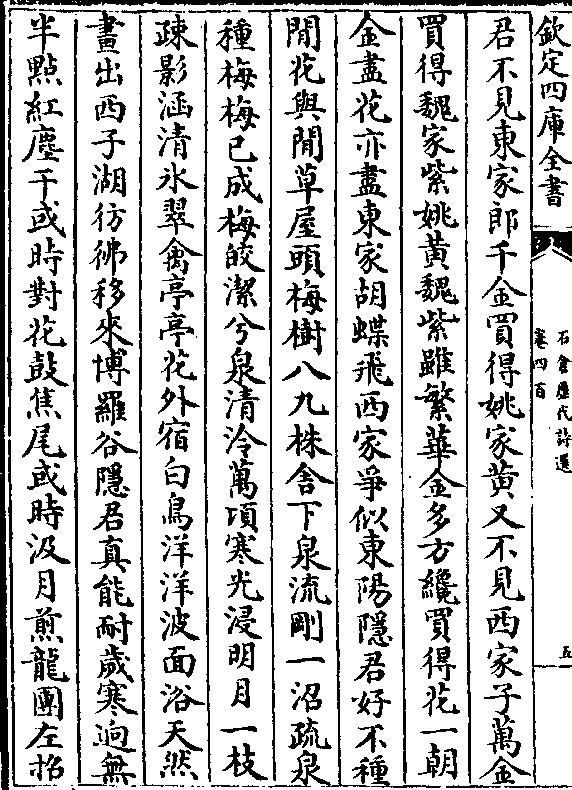 欽定四庫全書
石倉歷代詩選
卷四百
五
君不見東家郎千金買得姚家黄又不見西家子萬金
買得魏家紫姚黄魏紫雖繁華金多方纔買得花一朝
金盡花亦盡東家胡蝶飛西家爭似東陽隱君好不種
閒花與閒草屋頭梅樹八九株舎下泉流剛一沼疏泉
種梅梅已成梅皎潔兮泉清泠萬項寒光浸明月一枝
疎影涵清氷翠禽亭亭花外宿白鳥洋洋波面浴天然
畫出西子湖彷彿移來博羅谷隱君真能耐歲寒逈無
半點紅塵干或時對花鼓焦尾或時汲月煎龍團左招